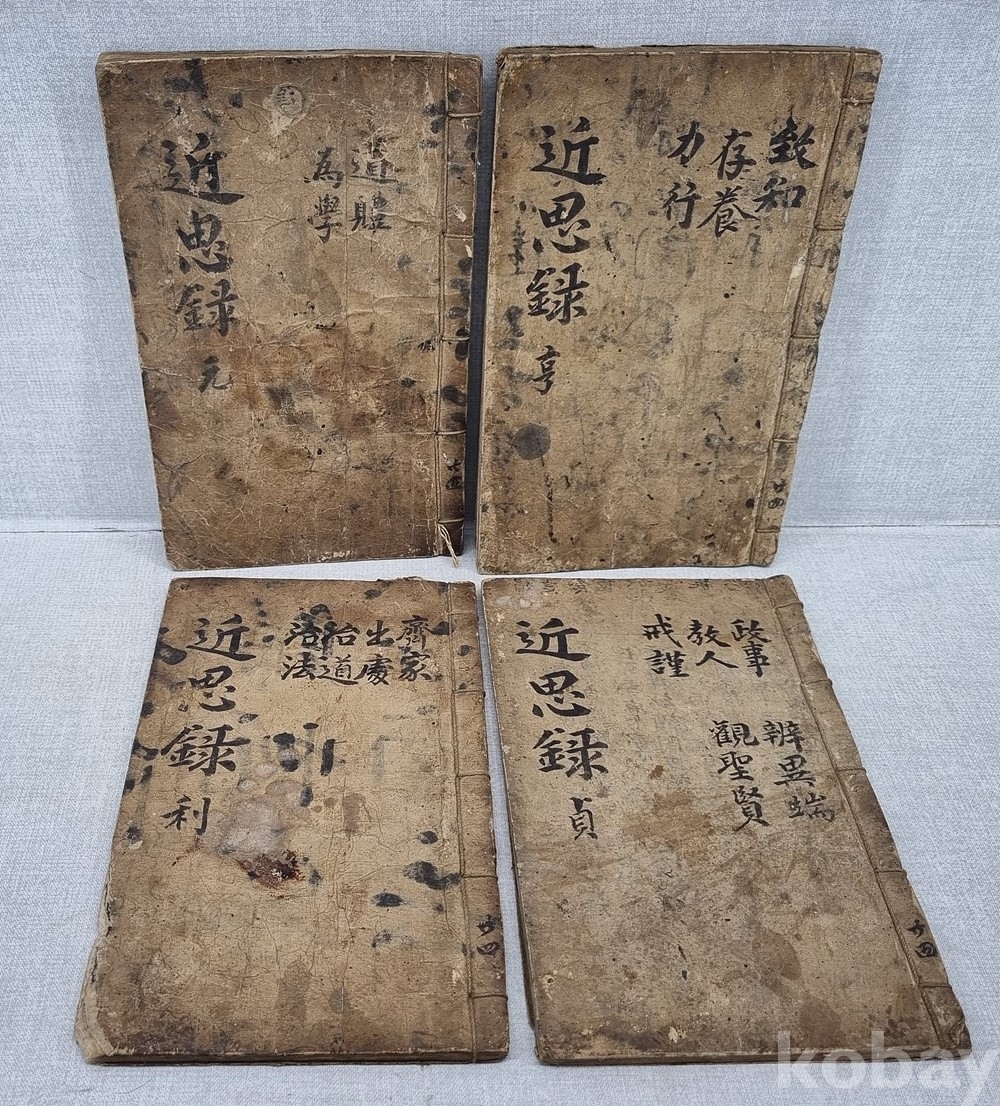 近思録 元
道體
為學
共四
近思録 亨
致知
存養
力行
共四
近思録 利
齊家
出處
治道
治法
共四
近思録 貞
政事
教人
戒謹
辨異端
觀聖賢
共四
kobay